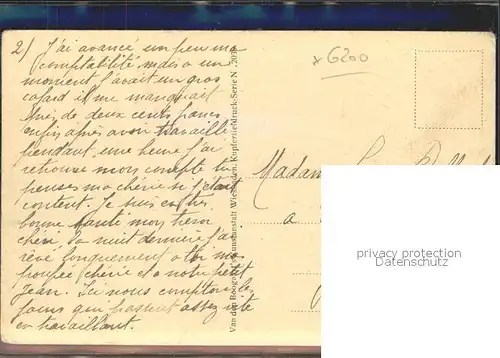 2) J'ai avancé un peu ma
comptabilité mais a un
moment j'avait un gros
cafard il me manquait
près de deux cents francs
enfin après avoir travaillé
pendant une heure j'ai
retrouvé mon compte tu
penses ma chérie si j'étais
content. Je suis en très
bonne santé mon trésor
chéri. La nuit dernière j'ai
rêvé longuement a toi ma
poupée chérie et a notre petit
Jean. Ici nous comptons les
jours qui passent assez vite
en travaillant.
x G200
Madame
a
Van den Boogaart, Wiesbaden, Kupfertiefdruck-Serie N
privacy protection
Datenschutz